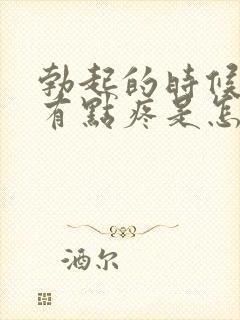 勃起的時候
有點疼是怎
酒尔